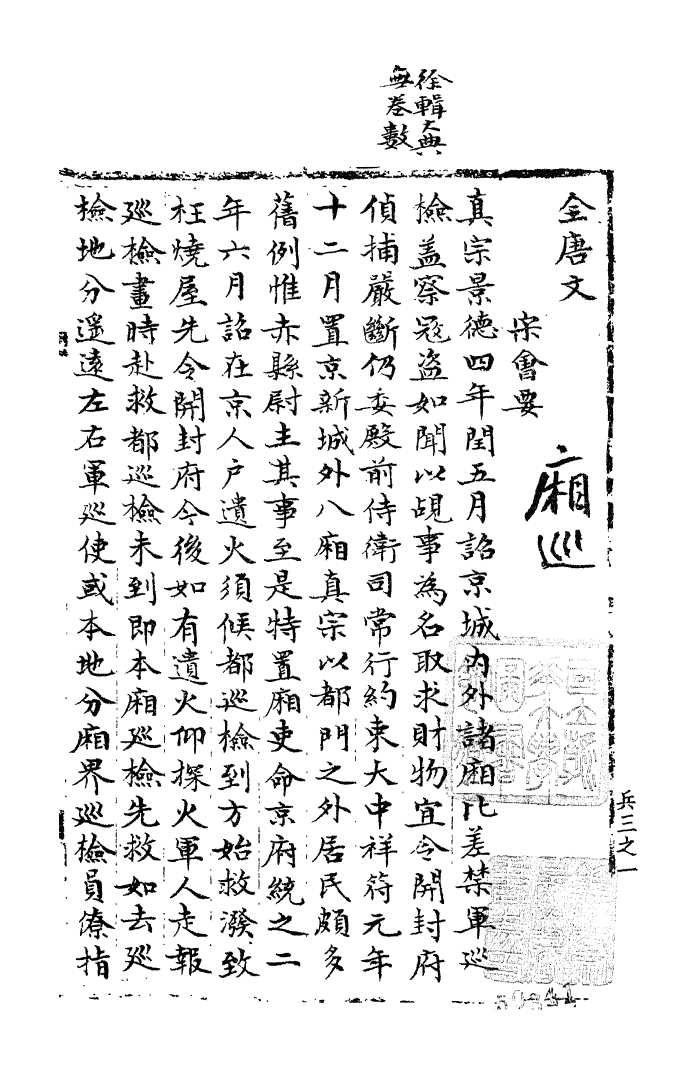 徐輯大典
無卷數
全唐文
宋會要
廂巡
真宗景德四年閏五月詔京城內外諸廂比差禁軍巡
檢蓋察寇盜如聞以覘事為名取求財物宜令開封府
偵捕嚴斷仍委殿前侍衛司常行約束大中祥符元年
十二月置京新城外八廂真宗以都門之外居民頗多
舊例惟赤縣尉主其事至是特置廂吏命京府統之二
年六月詔在京人户遺火須候都巡檢到方始救潑致
枉燒屋先令開封府今後如有遺火仰探火軍人走報
巡檢畫時赴救都巡檢未到即本廂巡檢先救如去巡
檢地分遥遠左右軍巡使或本地分廂界巡檢員僚指
兵三之一